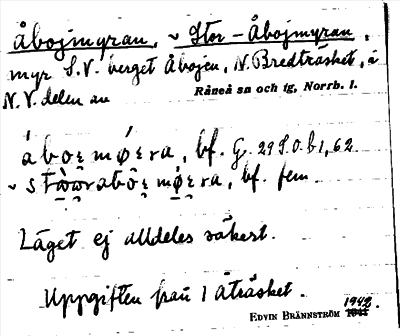 Åbojmyran, ~ Stor-Åbojmyran,
myr S.V. berget Åbojen, N. Bredträsket, i
N.V. delen av
Råneå sn och tg, Norrb. l.
bf. G. 29 S.O. b 1, 62
bf. fem
Läget ej alldeles säkert.
Uppgiften från 1 Åträsket.
EDVIN BRÄNNSTRÖM 1942.